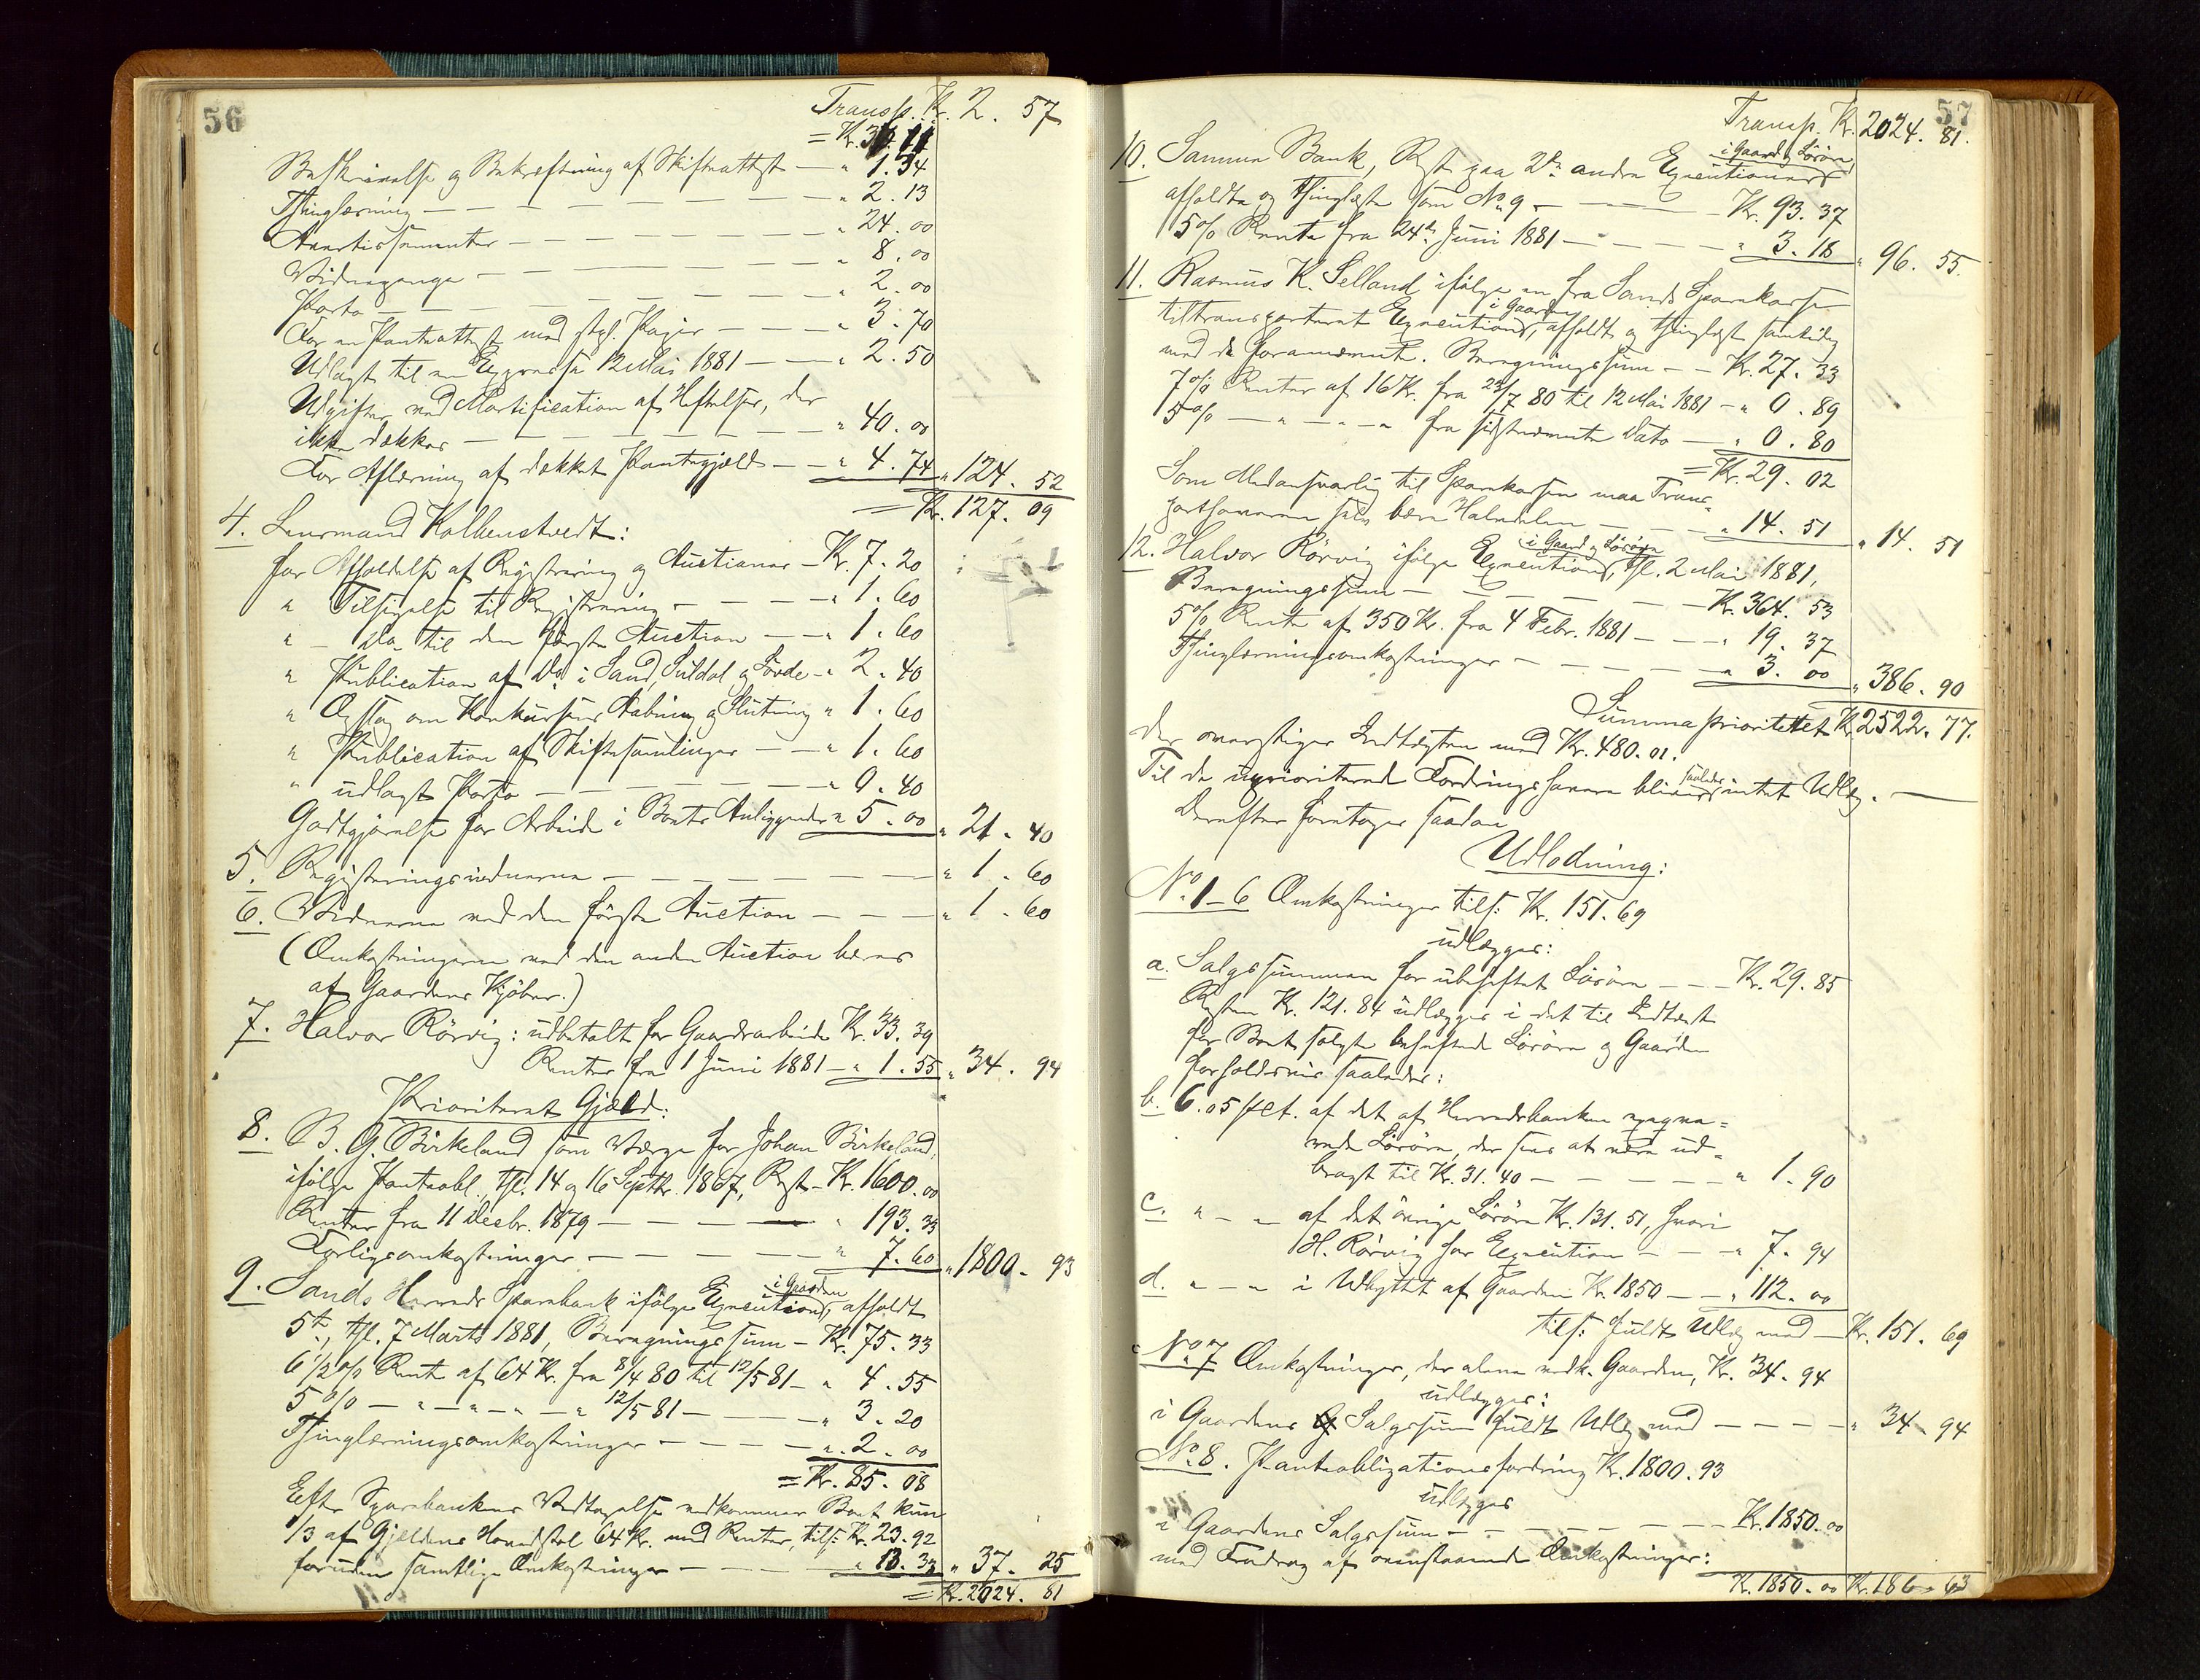 56
Transp. Kr. 2. 57
= Kr.
Beskrivelse og Bekræftning af Skifteattest — " 1.34
Thinglæsning — " 2.13
Avertissementer — " 24.00
Vidnepenge — " 8.00
Porto — " 2.00
For en Panteattest med stpl. Papir — " 3.70
Udlagt til en Expresse 12 Mai 1881 — " 2.50
Udgifter ved Mortification af Heftelser, der
ikke dækkes — " 40.00
For Aflæsning af dækket Pantegjæld — " 4.74 " 124. 52
= Kr. 127. 09
4. Lensmand Kolbenstvedt:
for Afholdelse af Registrering og Auctioner — Kr. 7.20
" Tilsigelse til Registrering — " 1.60
" — Do. til den første Auction — " 1.60
" Publication af Do. i Sand, Suldal og Sövde — " 2.40
" Opslag om Konkursens Aabning og Slutning " 1.60
" Publication af Skiftesamlinger — " 1.60
" udlagt Porto — " 0.40
Godtgjørelse for Arbeide i Boets Anliggender " 5.00 " 21. 40
5. Registreringsvidnerne — " 1. 60
6. Vidnerne ved den første Auction — " 1. 60
(Omkostningerne ved den anden Auction bæres
af Gaardens Kjøber.)
7. Halvor Rörvig: udbetalt for Gaardsarbeide Kr. 33.39
Renter fra 1 Juni 1881 — " 1.55 " 34. 94
Prioriteret Gjæld:
8. B. G. Birkeland som Værge for Johan Birkeland
ifølge Panteobl., thl. 14 og 16 Septbr. 1867, Rest — Kr. 1600.00
Renter fra 11 Decbr. 1879 — " 193.33
Forligsomkostninger — " 7.60 " 1800. 93
i Gaarden
9. Sands Herreds Sparebank ifølge Execution, afholdt
5te, thl. 7 Marts 1881, Beregningssum — Kr. 75.33
6 1/2 % Rente af 64 Kr. fra 8/4 80 til 12/5 81 — " 4.55
5 % — " — " — " — " 12/5 81 — " 3.20
Thinglæsningsomkostninger — " 2.00
= Kr. 85.08
Efter Sparebankens Vedtagelse vedkommer Boet kun
1/3 af Gjældens Hovedstol 64 Kr. med Renter, tils. Kr. 23.92
foruden samtlige Omkostninger — " 13.33 " 37. 25
= Kr. 2024. 81
57
Transp. Kr. 2024. 81.
i Gaard og Lösöre
10. Samme Bank, Rest paa 2de andre Executioner
afholdte og thinglæste som No 9 — Kr. 93.37
5 % Rente fra 24de Juni 1881 — " 3.18 " 96. 55
11. Rasmus K. Selland ifølge en fra Sands Sparekasse
i Gaarden
tiltransporteret Execution, afholdt og thinglæst samtidig
med de forannævnte. Beregningssum — Kr. 27.33
7 % Renter af 16 Kr. fra 23/7 80 til 12 Mai 1881 — " 0.89
5 % — " — " — " fra sidstnævnte Dato — " 0.80
= Kr. 29.02
Som Medansvarlig til Sparekassen maa Trans-
porthaveren selv bære Halvdelen — " 14.51 " 14. 51
i Gaard og Lösöre
12. Halvor Rörvig ifølge Execution, thl. 2 Mai 1881,
Beregningssum — Kr. 364.53
5 % Rente af 350 Kr. fra 4 Febr. 1881 — " 19.37
Thinglæsningsomkostninger — " 3.00 " 386. 90
Summa prioritetet Kr. 2522. 77.
der overstiger Indtægten med Kr. 480.01.
saaledes
Til de uprioriterede Fordringshavere bliver intet Udlæg. —
Derefter foretages saadan
Udlodning:
No. 1–6 Omkostninger tils: Kr. 151.69
udlægges:
a. Salgssummen for ubeheftet Lösöre — Kr. 29.85
Resten Kr. 121.84 udlægges i det til Indtægt
for Boet solgte beheftede Lösöre og Gaarden
forholdsvis saaledes:
b. 6.05 pCt. af det af Herredsbanken exeqve-
rede Lösöre, der sees at være ud-
bragt til Kr. 31.40 — " 1.90
c. " — " af det øvrige Lösöre Kr. 131.51, hvori
H. Rörvig har Execution — " 7.94
d. " — " i Udbyttet af Gaarden Kr. 1850 — " 112.00
tils: fuldt Udlæg med — Kr. 151. 69
No. 7 Omkostninger, der alene vedk. Gaarden, Kr. 34.94
udlægges:
i Gaardens Salgssum fuldt Udlæg med — " 34. 94
No. 8. Panteobligationsfordring Kr. 1800.93
udlægges
i Gaardens Salgssum — Kr. 1850.00
med Fradrag af ovenstaaende Omkostninger:
Kr. 1850.00 Kr. 186. 63